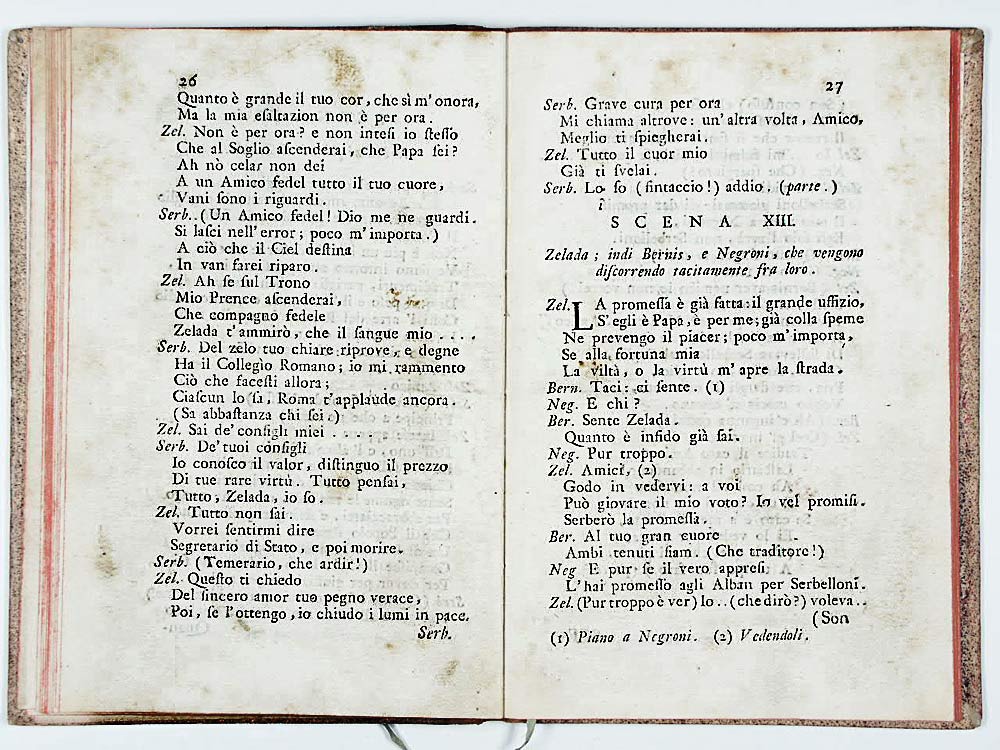 26
Quanto è grande il tuo cor, che sì m'onora,
Ma la mia eſaltazion non è per ora.
Zel. Non è per ora? e non inteſi io ſteſſo
Che al Soglio aſcenderai, che Papa ſei?
Ah nò celar non dei
A un Amico fedel tutto il tuo cuore,
Vani ſono i riguardi.
Serb.. (Un Amico fedel! Dio me ne guardi.
Si laſci nell'error; poco m'importa.)
A ciò che il Ciel deſtina
In van farei riparo.
Zel. Ah ſe ſul Trono
Mio Prence aſcenderai,
Che compagno fedele
Zelada t'ammirò, che il ſangue mio ....
Serb. Del zelo tuo chiare riprove, e degne
Ha il Collegio Romano; io mi rammento
Ciò che faceſti allora;
Ciaſcun lo ſa, Roma t'applaude ancora.
(Sa abbaſtanza chi ſei.)
Zel. Sai de' conſigli miei .....
Serb. De' tuoi conſigli
Io conoſco il valor, diſtinguo il prezzo
Di tue rare virtù. Tutto penſai,
Tutto, Zelada, io ſo.
Zel. Tutto non ſai.
Vorrei ſentirmi dire
Segretario di Stato, e poi morire.
Serb. (Temerario, che ardir!)
Zel. Queſto ti chiedo
Del ſincero amor tuo pegno verace,
Poi, ſe l'ottengo, io chiudo i lumi in pace.
Serb.
27
Serb. Grave cura per ora
Mi chiama altrove: un'altra volta, Amico,
Meglio ti ſpiegherai.
Zel. Tutto il cuor mio
Già ti ſvelai.
Serb. Lo ſo (ſintaccio!) addio. (parte.)
SCENA XIII.
Zelada; indi Bernis, e Negroni, che vengono
diſcorrendo tacitamente fra loro.
Zel. LA promeſſa è già fatta: il grande uffizio,
S'egli è Papa, è per me; già colla ſpeme
Ne prevengo il piacer; poco m'importa,
Se alla fortuna mia
La viltà, o la virtù m'apre la ſtrada.
Bern. Taci: ci ſente. (1)
Neg. E chi?
Ber. Sente Zelada.
Quanto è infido già ſai.
Neg. Pur troppo.
Zel. Amici, (2)
Godo in vedervi: a voi
Può giovare il mio voto? Io vel promiſi.
Serberò la promeſſa.
Ber. Al tuo gran cuore
Ambi tenuti ſiam. (Che traditore!)
Neg E pur ſe il vero appreſi
L'hai promeſſo agli Alban per Serbelloni.
Zel. (Pur troppo è ver) Io .. (che dirò?) voleva..
(Son
(1) Piano a Negroni. (2) Vedendoli.